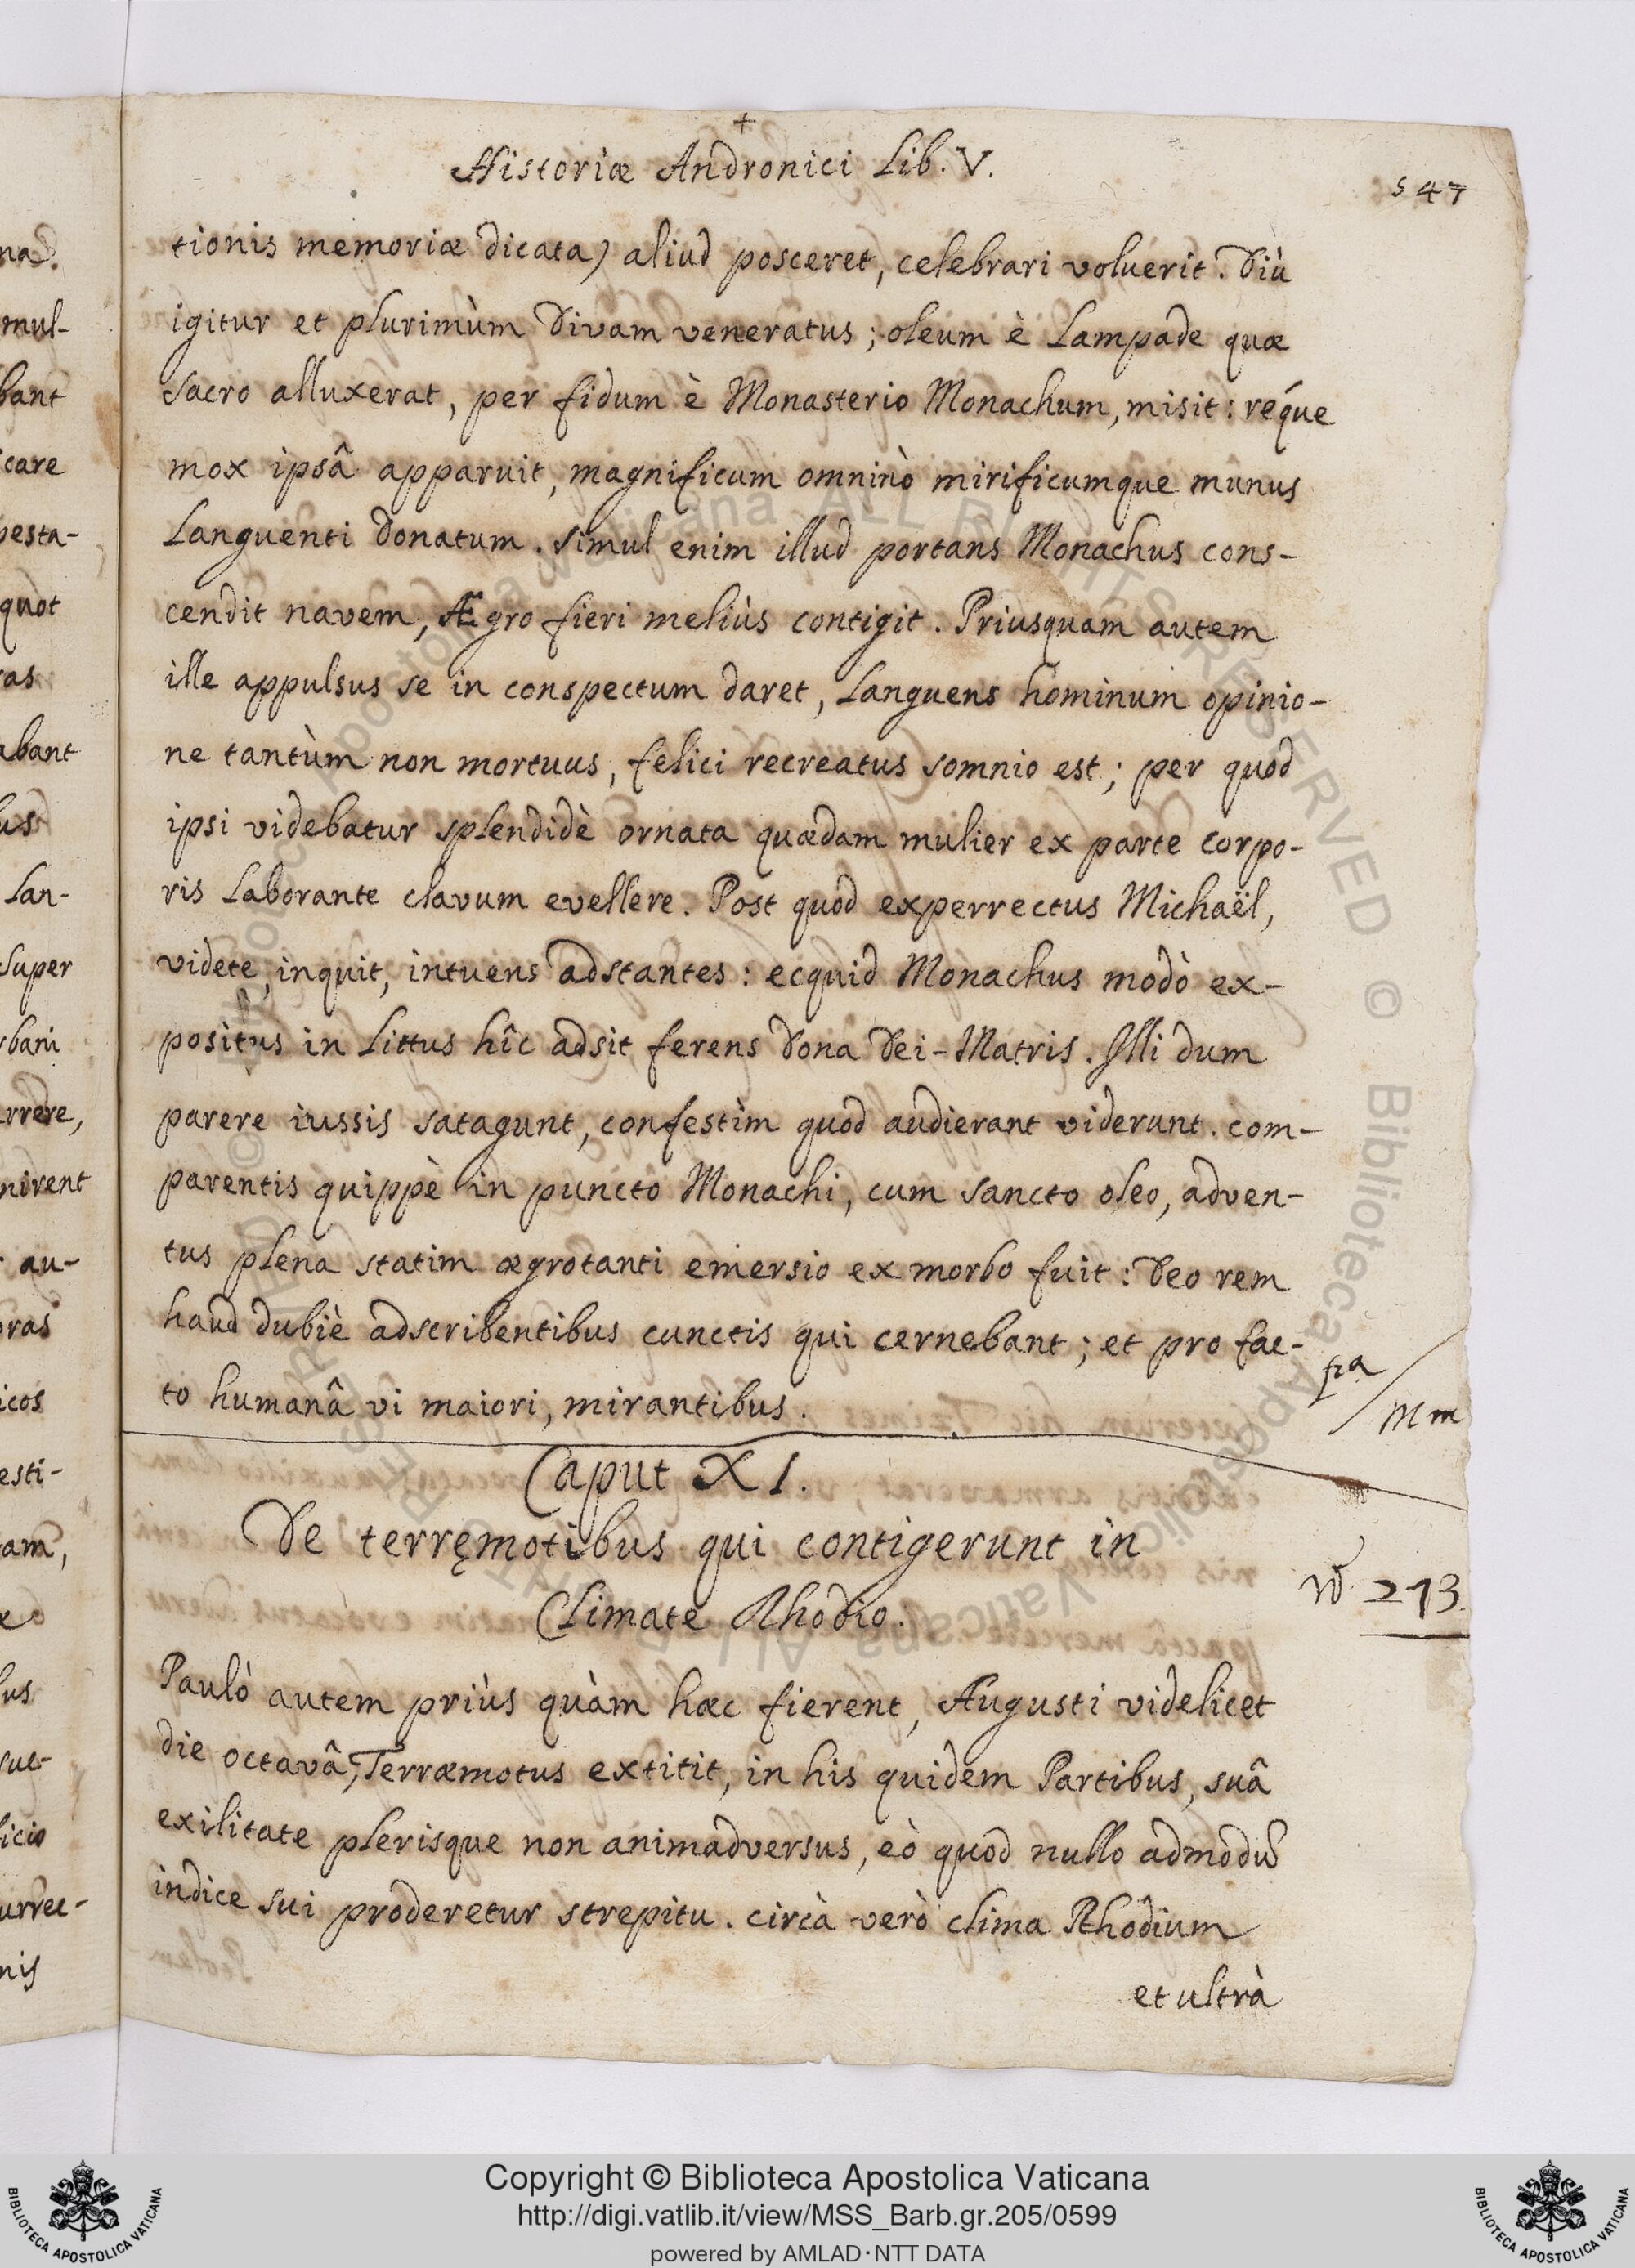 +
Historiæ Andronici Lib. V.
547
tionis memoriæ dicata) aliud posceret, celebrari voluerit. Diù
igitur et plurimùm Divam veneratus; oleum è Lampade quæ
sacro alluxerat, per fidum è Monasterio Monachum, misit: réque
mox ipsâ apparuit, magnificum omninò mirificumque munus
Languenti donatum. Simul enim illud portans Monachus cons-
cendit navem, Ægro fieri meliùs contigit. Priusquam autem
ille appulsus se in conspectum daret, Languens hominum opinio-
ne tantùm non mortuus, felici recreatus somnio est; per quod
ipsi videbatur splendidè ornata quædam mulier ex parte corpo-
ris Laborante clavum evellere. Post quod experrectus Michaël,
videte, inquit, intuens adstantes: ecquid Monachus modò ex-
positus in Littus hîc adsit ferens dona Dei-Matris. Illi dum
parere iussis satagunt, confestìm quod audierant viderunt. com-
parentis quippè in puncto Monachi, cum sancto oleo, adven-
tus plena statim ægrotanti emersio ex morbo fuit: Deo rem
haud dubiè adscribentibus cunctis qui cernebant; et pro fac-
to humanâ vi maiori, mirantibus.
M m
Caput XI.
De terręmotibus qui contigerunt in
Climate Rhodio.
273
Paulò autem priùs quàm hæc fierent, Augusti videlicet
die octavâ, Terræmotus extitit, in his quidem Partibus, suâ
exilitate plerisque non animadversus, eò quod nullo admodū
indice sui proderetur strepitu. circà verò clima Rhodium
et ultrà
na.
mul-
bant
care
pesta-
quot
ras
abant
bus
Lan-
super
rbani
rrere,
nirent
au-
oras
icos
esti-
am,
lus
suc-
ficio
urrec-
nis
Copyright © Biblioteca Apostolica Vaticana
http://digi.vatlib.it/view/MSS_Barb.gr.205/0599
powered by AMLAD·NTT DATA
BIBLIOTECA APOSTOLICA VATICANA
BIBLIOTECA APOSTOLICA VATICANA